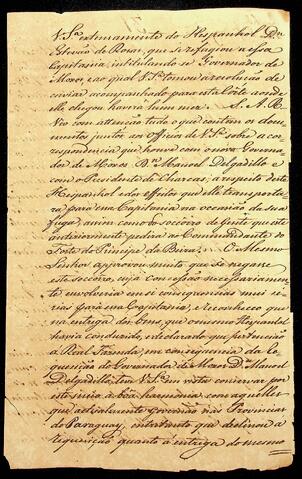 V. S.ª extremamento do Hespanhol D.n
Estevão de Rosas, que se refugiou a essa
Capitania, intitulando se Governador de
Moxos, e ao qual V. S.ª tomou a resolução de
enviar acompanhado para esta Corte aonde
elle chegou haverá hum mez. S. A. R.
Vio com attenção tudo o que contém os docu-
mentos juntos aos Officios de V. S.ª sobre a cor-
respondencia que houve com o novo Governa-
dor de Moxos D.n Manoel Delgadillo e
com o Presidente de Charcas, a respeito deste
Hespanhol e dos effeitos que elle transporta-
ra para essa Capitania na occasião da sua
fuga, assim como do soccorro de gente que este
anteriormente pedira ao Commandante do
Forte do Principe da Beira. O Mesmo
Senhor approvou muito que se negasse
este soccorro, cuja concessão necessariamen-
te envolveria em si consequencias mui sé-
rias para essa Capitania, e reconheceo que
na entrega dos bens, que o mesmo Hespanhol
havia conduzido, e declarado que pertencião
á Real Fazenda, em consequencia da re-
quisição do Governador de Moxos D. Manoel
Delgadillo, teve V. S.ª em vista conservar por
este meio a bôa harmonia com aquelles
que actualmente Governão nas Provincias
do Paraguay, entretanto que declinou a
requisição quanto á entrega do mesmo